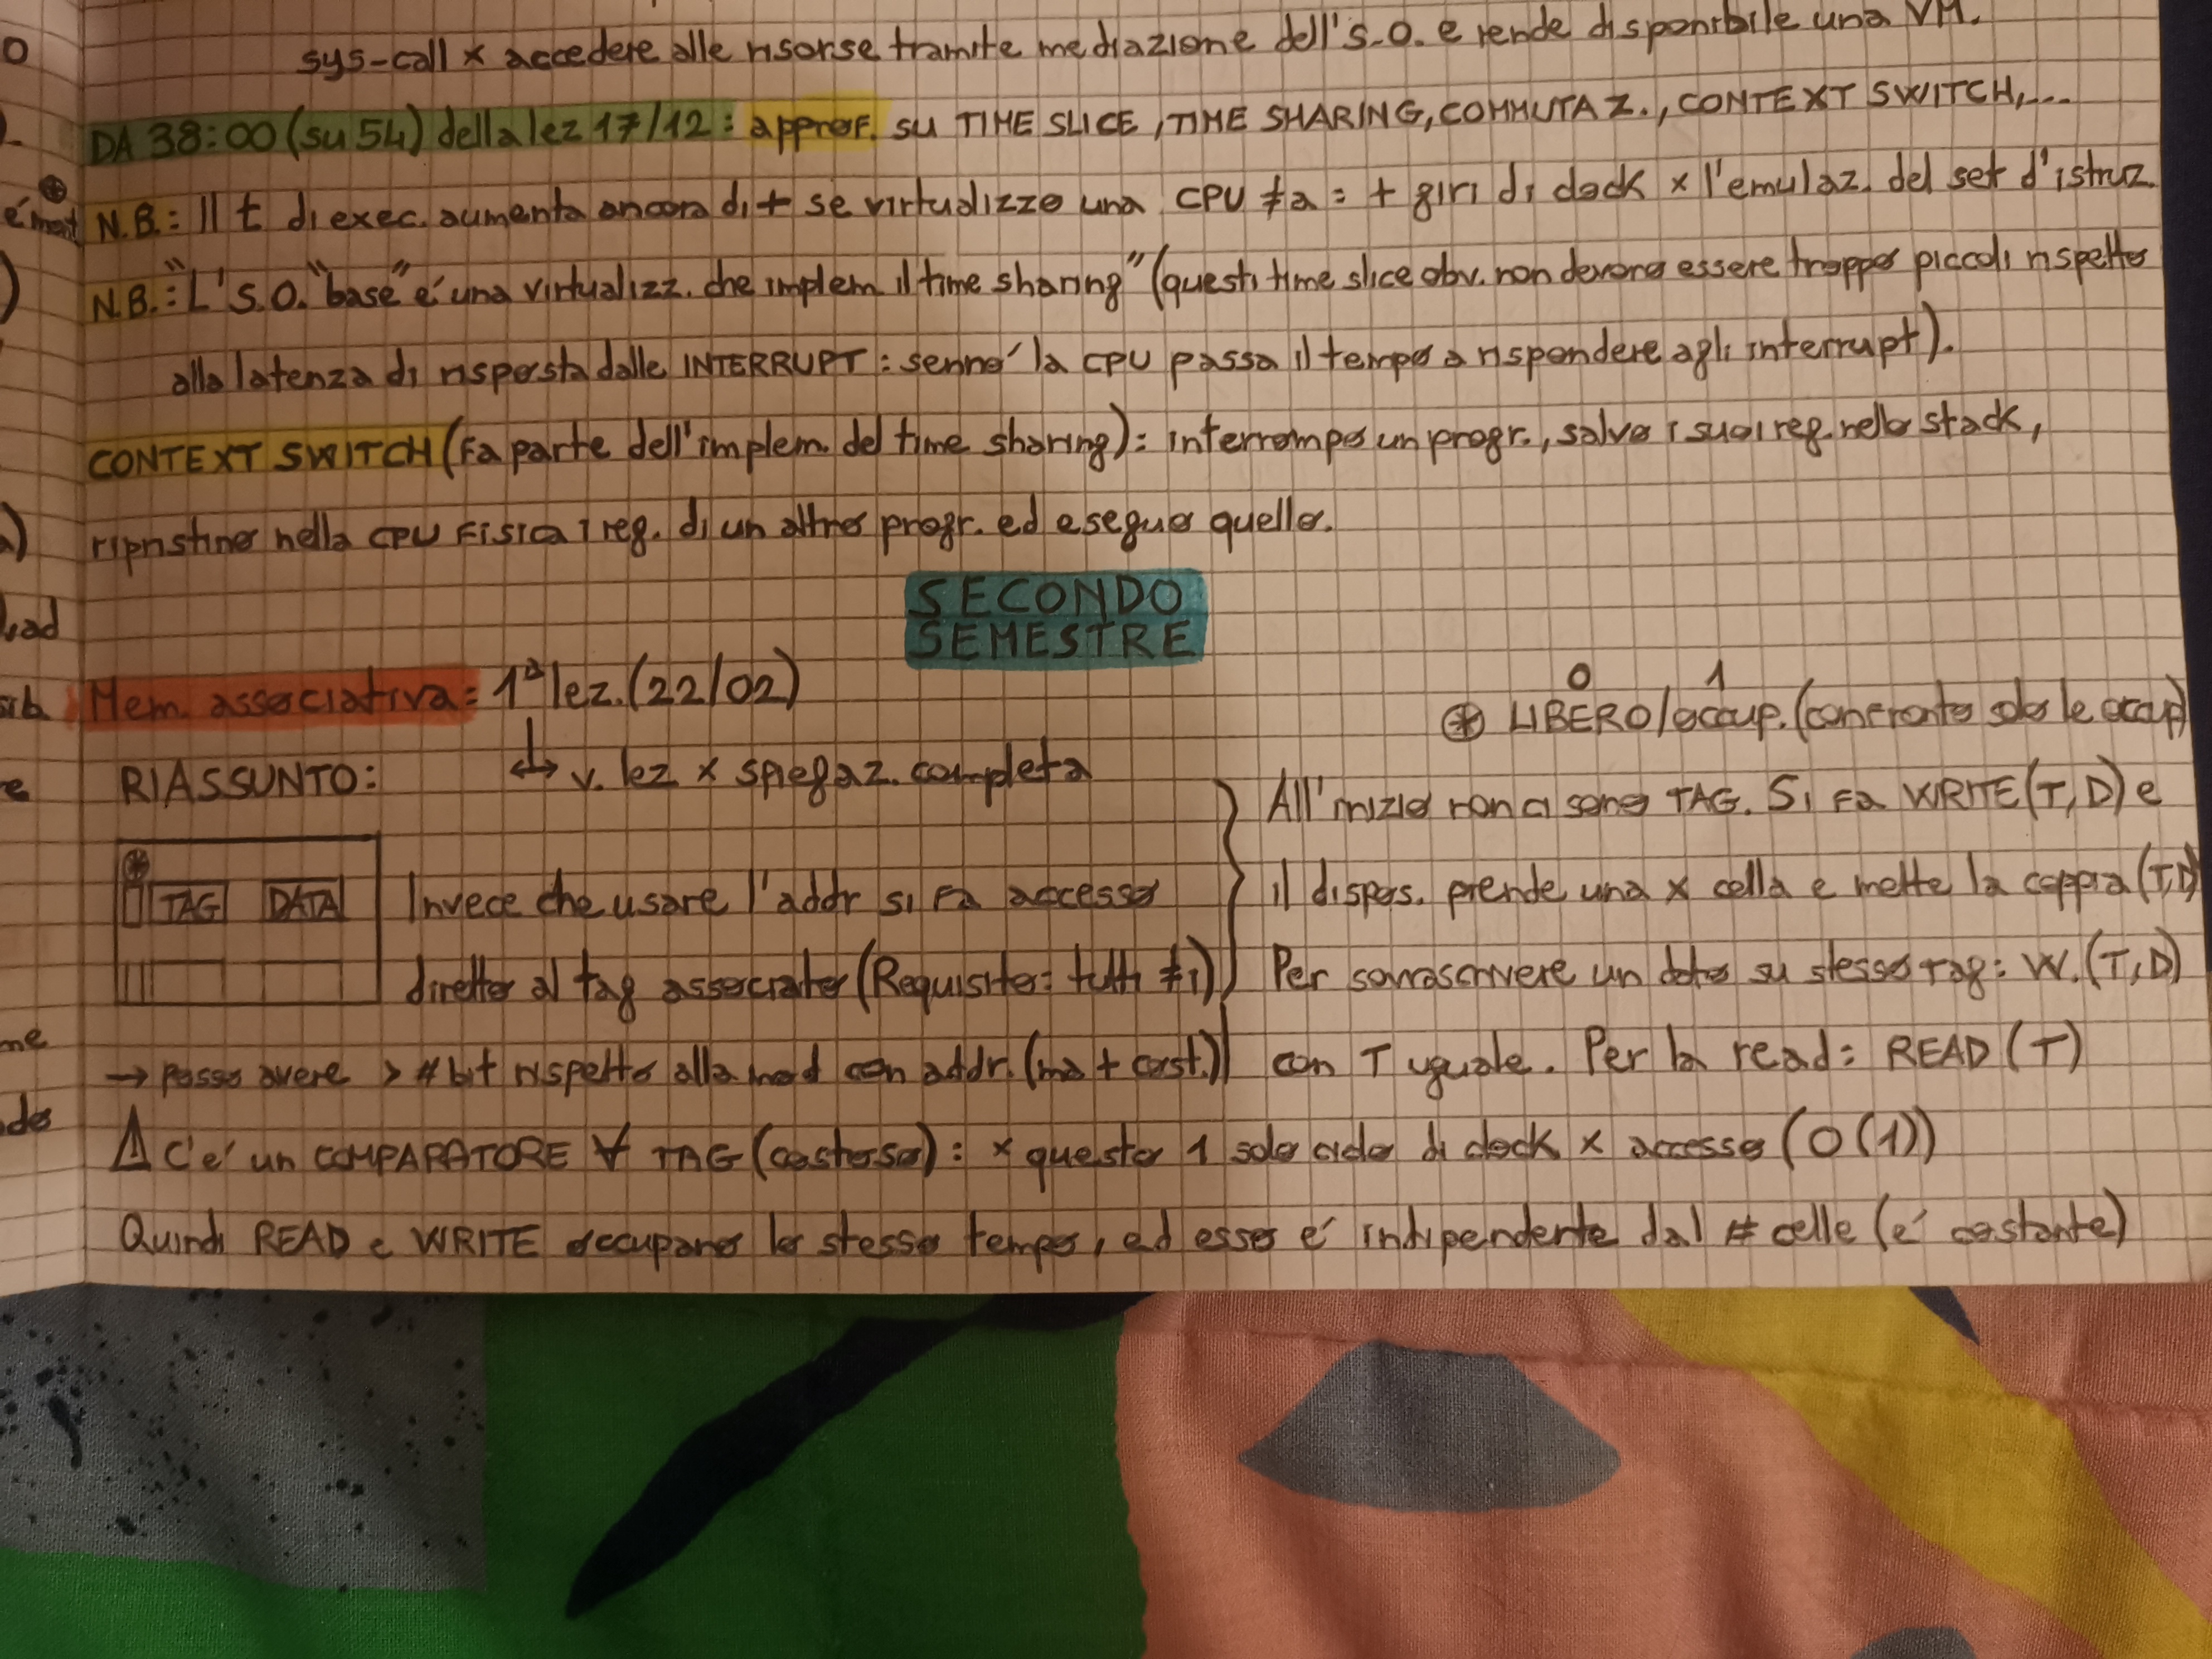 sys-call x accedere alle risorse tramite mediazione dell's.o. e rende disponibile una VM.
DA 38:00 (su 54) della lez 17/12: approf. su TIME SLICE, TIME SHARING, COMMUTAZ., CONTEXT SWITCH,...
N.B.: Il t di exec. aumenta ancora di + se virtualizzo una CPU ≠a: + giri di clock x l'emulaz. del set d'istruz.
N.B.: "L'S.O. "base" é una virtualizz. che implem. il time sharing" (questi time slice obv. non devono essere troppo piccoli rispetto
alla latenza di risposta dalle INTERRUPT: sennó la CPU passa il tempo a rispondere agli interrupt).
CONTEXT SWITCH (fa parte dell'implem. del time sharing): interrompo un progr., salvo i suoi reg. nello stack,
ripristino nella CPU fisica i reg. di un altro progr. ed eseguo quello.
SECONDO
SEMESTRE
Mem. associativa: 1ª lez. (22/02)
↳ v. lez x spiegaz. completa
RIASSUNTO:
⊛ TAG DATA
Invece che usare l'addr si fa accesso
diretto al tag associato (Requisito: tutti ≠i)
→ posso avere > # bit rispetto alla mod con addr. (ma + cost.)
0 1
⊛ LIBERO/occup. (confronto solo le occup)
All'inizio non ci sono TAG. Si fa WRITE(T,D) e
il dispos. prende una x cella e mette la coppia (T,D)
Per sovrascrivere un dato su stesso tag: W.(T,D)
con T uguale. Per la read: READ(T)
⚠ C'é un COMPARATORE ∀ TAG (costoso): x questo 1 solo ciclo di clock x accesso (O(1))
Quindi READ e WRITE occupano lo stesso tempo, ed esso é indipendente dal # celle (é costante)